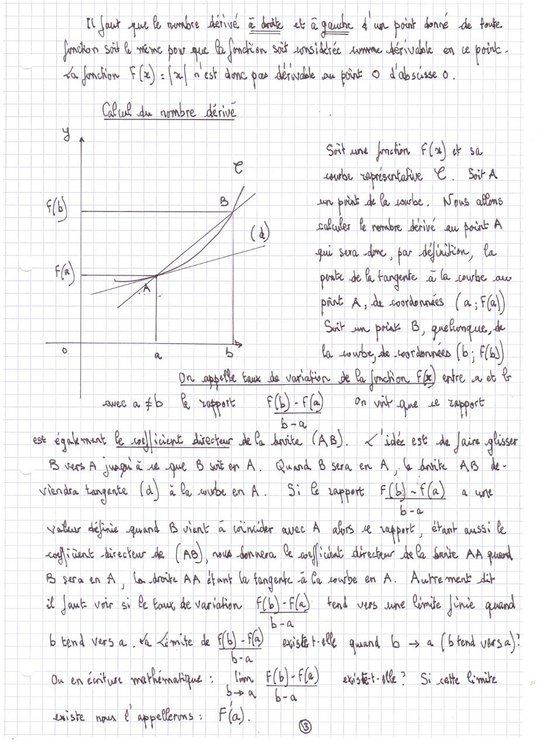 Il faut que le nombre dérivé à droite et à gauche d'un point donné de toute
fonction soit le même pour que la fonction soit considérée comme dérivable en ce point.
La fonction F(x) = |x| n'est donc pas dérivable au point O d'abscisse 0.
Calcul du nombre dérivé
y
C
B
F(b)
(d)
F(a)
A
0
a
b
Soit une fonction F(x) et sa
courbe représentative C. Soit A
un point de la courbe. Nous allons
calculer le nombre dérivé au point A
qui sera donc, par définition, la
pente de la tangente à la courbe au
point A, de coordonnées (a ; F(a))
Soit un point B, quelconque, de
la courbe, de coordonnées (b ; F(b))
On appelle taux de variation de la fonction F(x) entre a et b
avec a ≠ b le rapport F(b) - F(a) / b - a On voit que ce rapport
est également le coefficient directeur de la droite (AB). L'idée est de faire glisser
B vers A jusqu'à ce que B soit en A. Quand B sera en A, la droite AB de-
viendra tangente (d) à la courbe en A. Si le rapport F(b) - F(a) / b - a a une
valeur définie quand B vient à coïncider avec A alors ce rapport, étant aussi le
coefficient directeur de (AB), nous donnera le coefficient directeur de la droite AA quand
B sera en A, la droite AA étant la tangente à la courbe en A. Autrement dit
il faut voir si le taux de variation F(b) - F(a) / b - a tend vers une limite finie quand
b tend vers a. La limite de F(b) - F(a) / b - a existe-t-elle quand b → a (b tend vers a)?
Ou en écriture mathématique : lim b→a F(b) - F(a) / b - a existe-t-elle? Si cette limite
existe nous l'appellerons : F'(a).
13